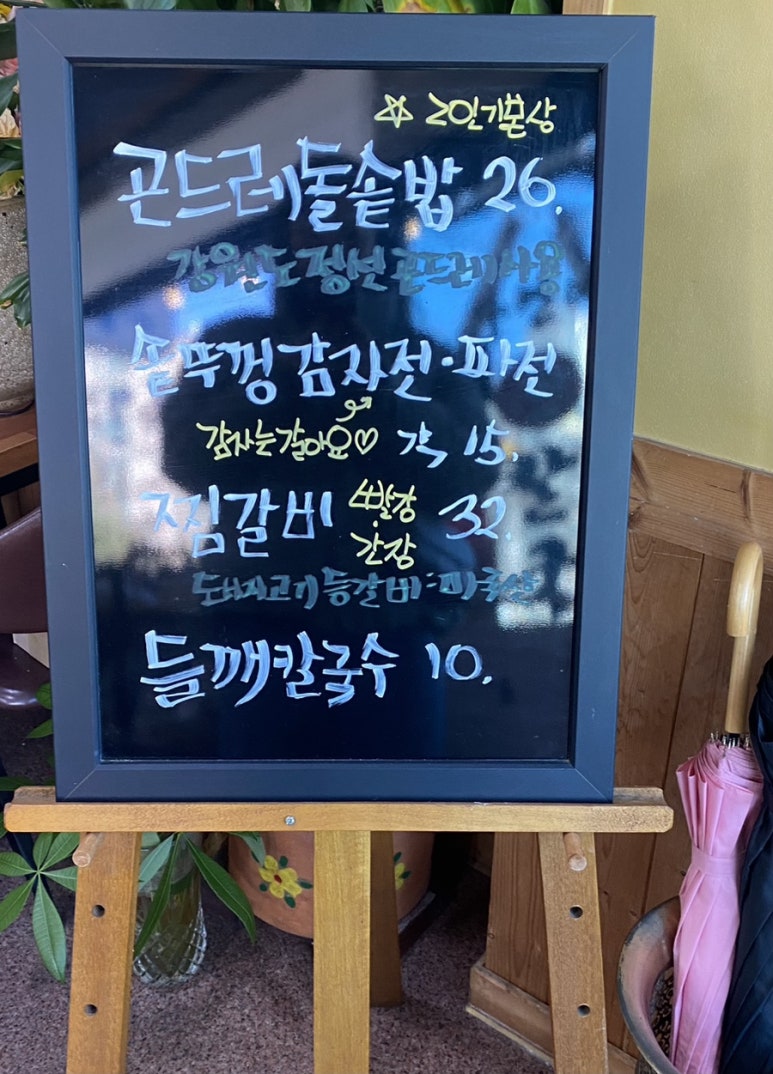 ☆ 2인기본상
곤드레돌솥밥 26.
강원도정선곤드레사용
솥뚜껑감자전·파전
감자는갈아요♡ 각 15.
찜갈비 빨강·간장 32.
돼지고기등갈비:미국산
들깨칼국수 10.